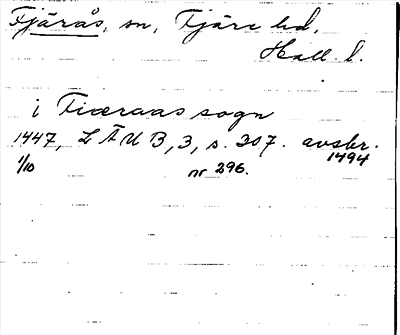 Fjärås, sn, Fjäre hd,
Hall. l.
i Fiæraas sogn
1447, L Ä U B, 3, s. 307. avskr. 1494
1/10 nr 296.